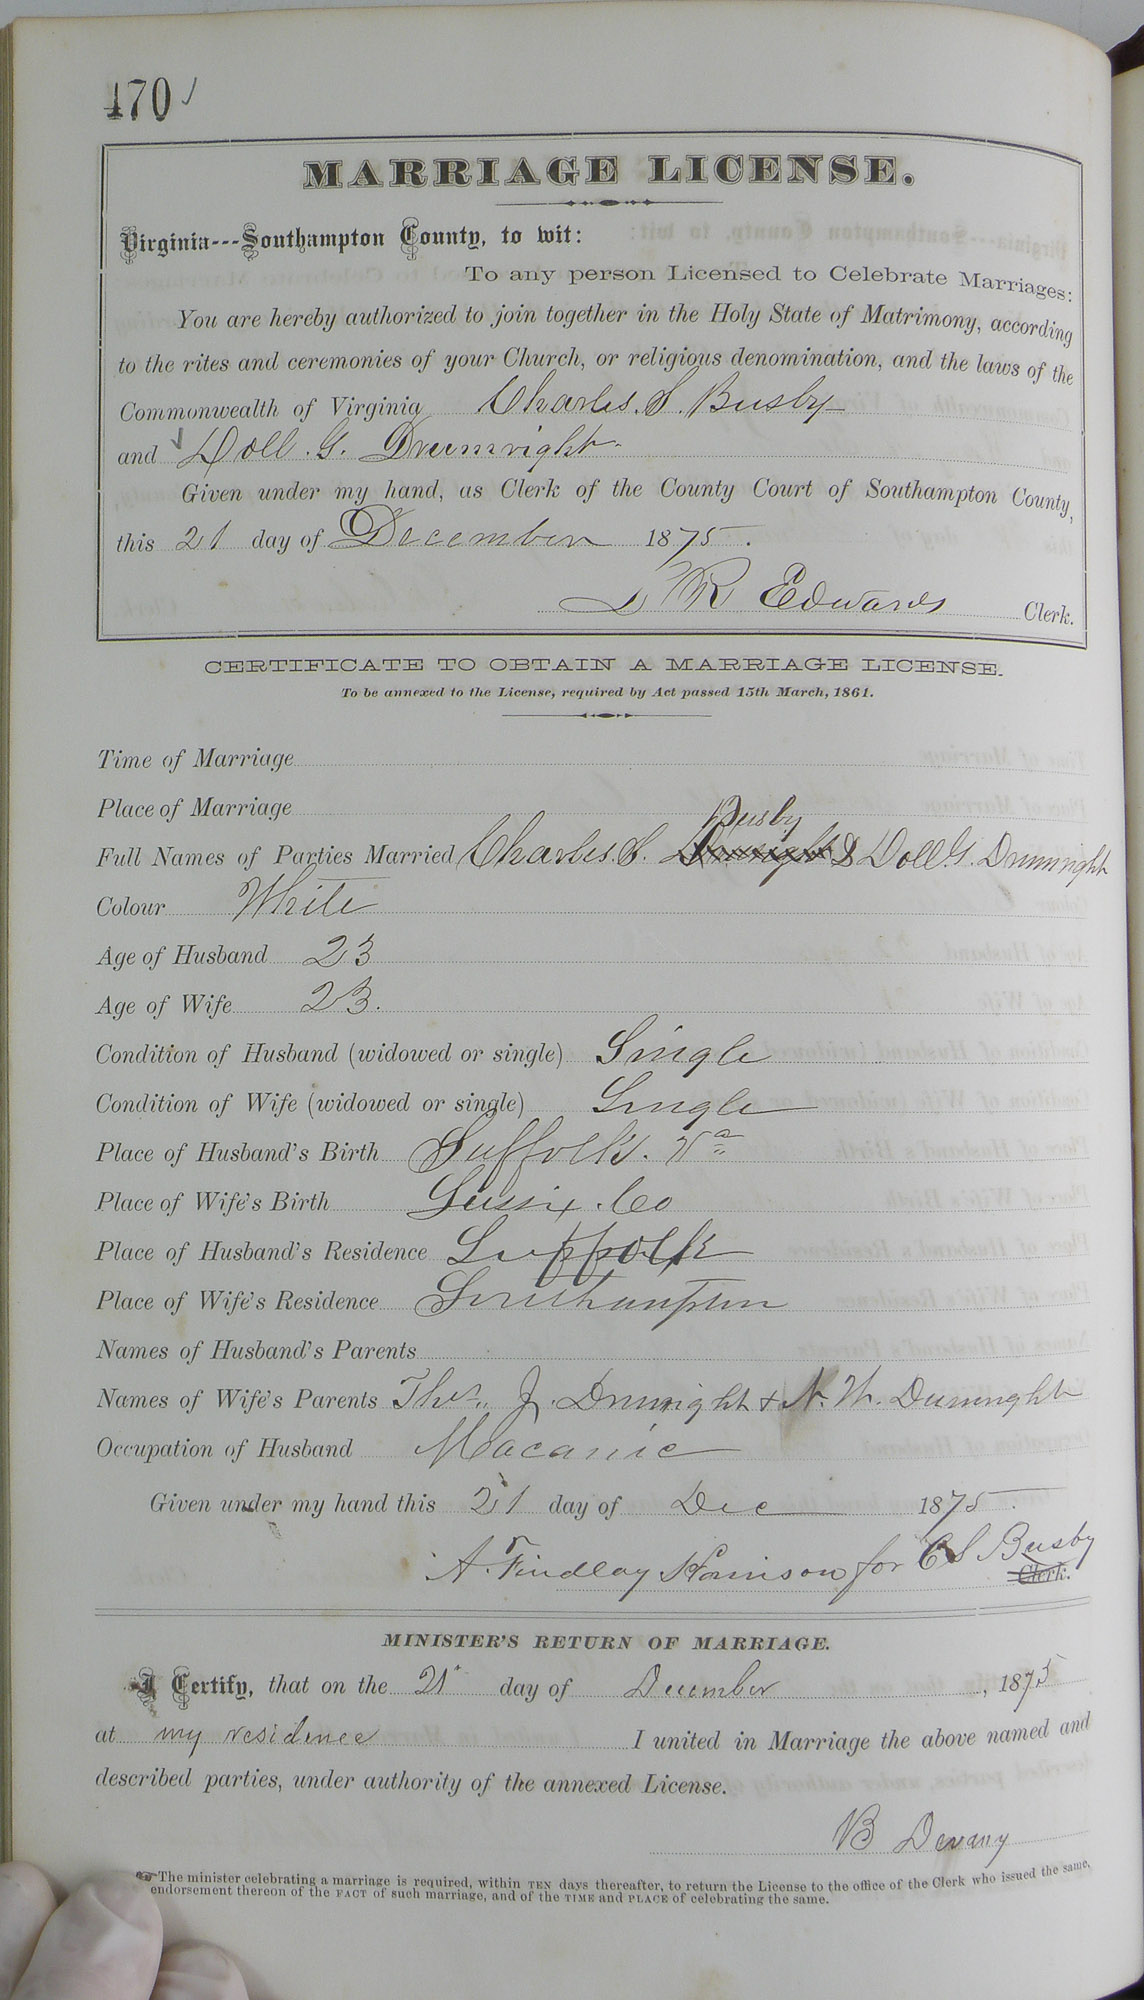 470
MARRIAGE LICENSE.
Virginia---Southampton County, to wit:
To any person Licensed to Celebrate Marriages:
You are hereby authorized to join together in the Holy State of Matrimony, according
to the rites and ceremonies of your Church, or religious denomination, and the laws of the
Commonwealth of Virginia Charles. S. Busby
and Doll. G. Drumright.
Given under my hand, as Clerk of the County Court of Southampton County,
this 21 day of December 1875.
L R Edwards Clerk.
CERTIFICATE TO OBTAIN A MARRIAGE LICENSE.
To be annexed to the License, required by Act passed 15th March, 1861.
Time of Marriage
Place of Marriage
Busby
Full Names of Parties Married Charles. S. & Doll G. Drumright
Colour White
Age of Husband 23
Age of Wife 23.
Condition of Husband (widowed or single) Single
Condition of Wife (widowed or single) Single
Place of Husband's Birth Suffolk. Va
Place of Wife's Birth Sussix. Co
Place of Husband's Residence Suffolk
Place of Wife's Residence Southampton
Names of Husband's Parents
Names of Wife's Parents Thos. J. Drumright & N. W. Drumright
Occupation of Husband Macanic
Given under my hand this 21 day of Dec 1875.
A. Findlay Harrison for C S Busby
Clerk.
MINISTER'S RETURN OF MARRIAGE.
I Certify, that on the 21 day of December, 1875
at my residence I united in Marriage the above named and
described parties, under authority of the annexed License.
B Devany
The minister celebrating a marriage is required, within TEN days thereafter, to return the License to the office of the Clerk who issued the same,
endorsement thereon of the FACT of such marriage, and of the TIME and PLACE of celebrating the same.